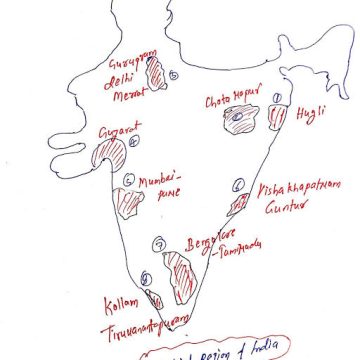 Gurugram
delhi
Merrat
Chota Nagpur
1
Hugli
Gujarat
4
3
Mumbai-
pune
6
Vishakhapatnam
Guntur
7
Bengalore
-Tamilnadu
8
Kollam
Tiruvanantapuram
Region of India